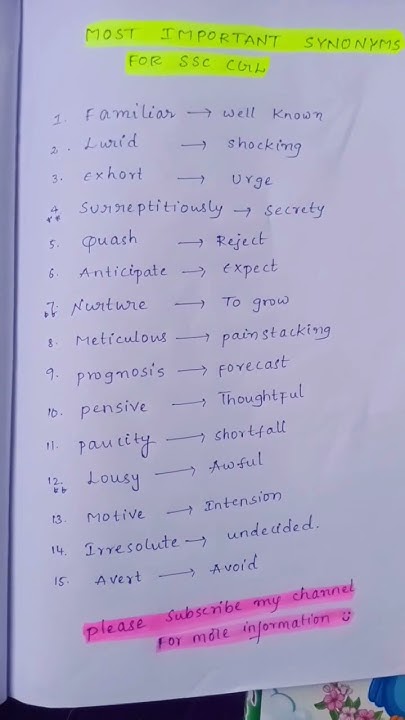 MOST IMPORTANT SYNONYMS
FOR SSC CGL
1. Familiar → well known
2. Lurid → shocking
3. Exhort → Urge
4. Surreptitiously → secrety
5. Quash → Reject
6. Anticipate → Expect
7. Nurture → To grow
8. Meticulous → painstacking
9. prognosis → forecast
10. pensive → Thoughtful
11. paucity → shortfall
12. Lousy → Awful
13. Motive → Intension
14. Irresolute → undecided.
15. Avert → Avoid
please subscribe my channel
For more information